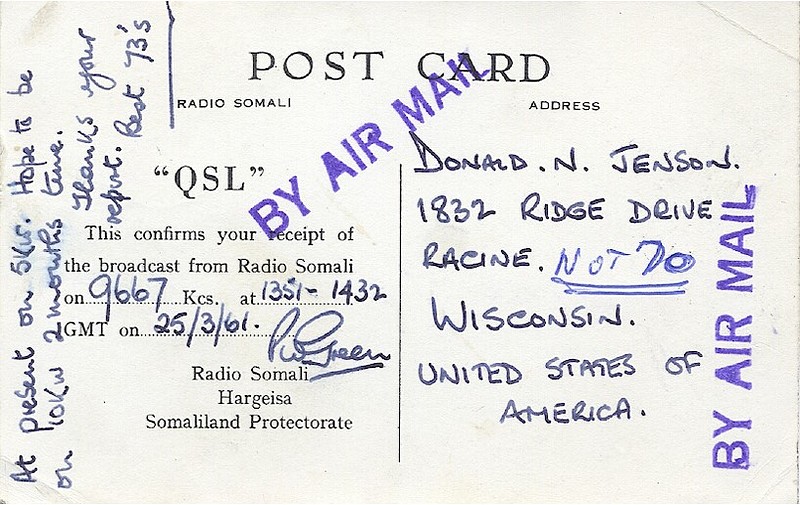 POST CARD
RADIO SOMALI
ADDRESS
BY AIR MAIL
"QSL"
This confirms your receipt of
the broadcast from Radio Somali
on 9667 Kcs. at 1351-1432
GMT on 25/3/61.
Green
Radio Somali
Hargeisa
Somaliland Protectorate
At present on 5Kw. Hope to be
on 10Kw 2 months time.
Thanks your
report. Best 73's
DONALD. N. JENSON.
1832 RIDGE DRIVE
RACINE. NOT 70
WISCONSIN.
UNITED STATES OF
AMERICA.
BY AIR MAIL